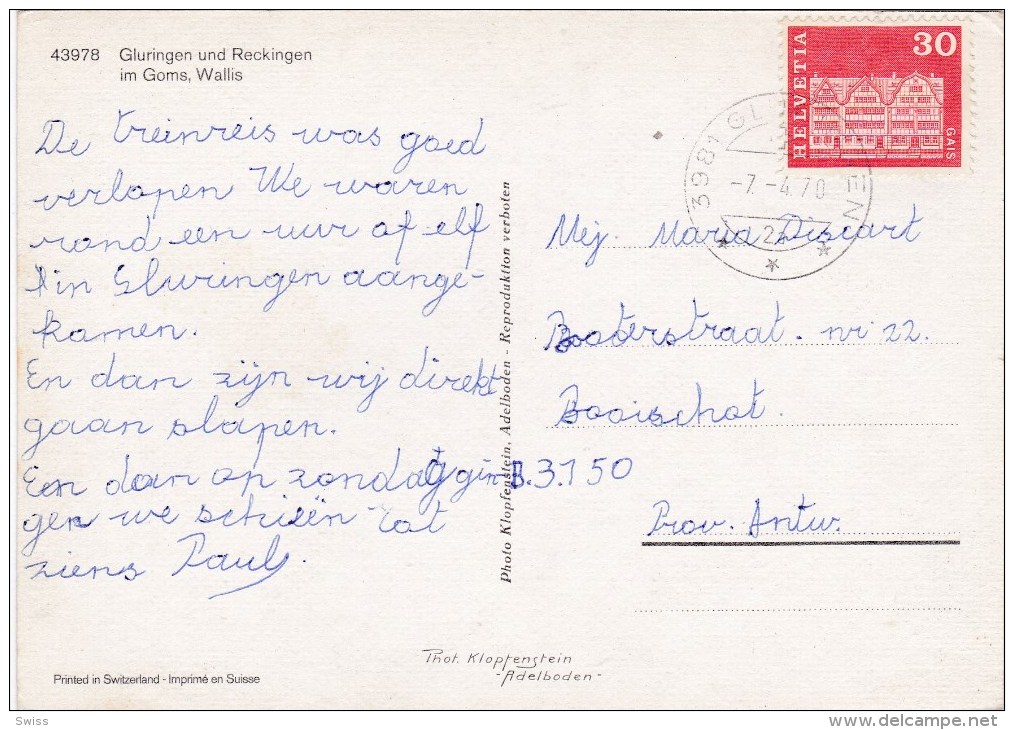 43978 Gluringen und Reckingen
im Goms, Wallis
De treinreis was goed
verlopen We waren
rond een uur of elf
in Gluringen aange-
komen.
En dan zijn wij direkt
gaan slapen.
En dan op zondag gin-
gen we schieën tot
ziens Paul.
Photo Klopfenstein, Adelboden - Reproduktion verboten
HELVETIA
30
GAIS
3981 GL
-7.-4.70
Mej. Maria Discart
Booterstraat. nr 22.
Booischot.
B.3150
Prov. Antw.
Phot. Klopfenstein
-Adelboden-
Printed in Switzerland - Imprimé en Suisse
Swiss
www.delcampe.net